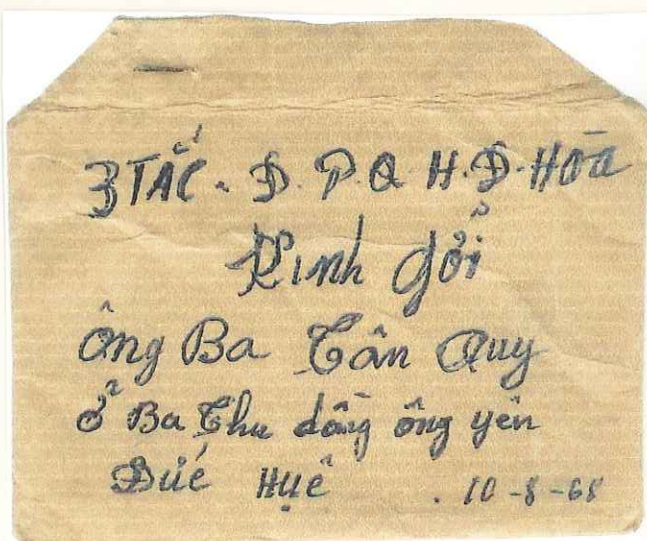 3 TẤC. Đ. P. Q. H. Đ. HOà
Kính gởi
ông Ba Tân Quy
ở Ba Thu đồng ông yên
Đứć Huệ . 10-8-68